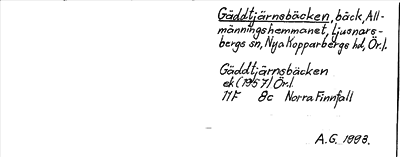 Gäddtjärnsbäcken, bäck, All-
männingshemmanet, Ljusnars-
bergs sn, Nya Kopparbergs hd, Ör.l.
Gäddtjärnsbäcken
ek (1957) Ör.l.
11F 8c Norra Finnfall
A.G. 1993.